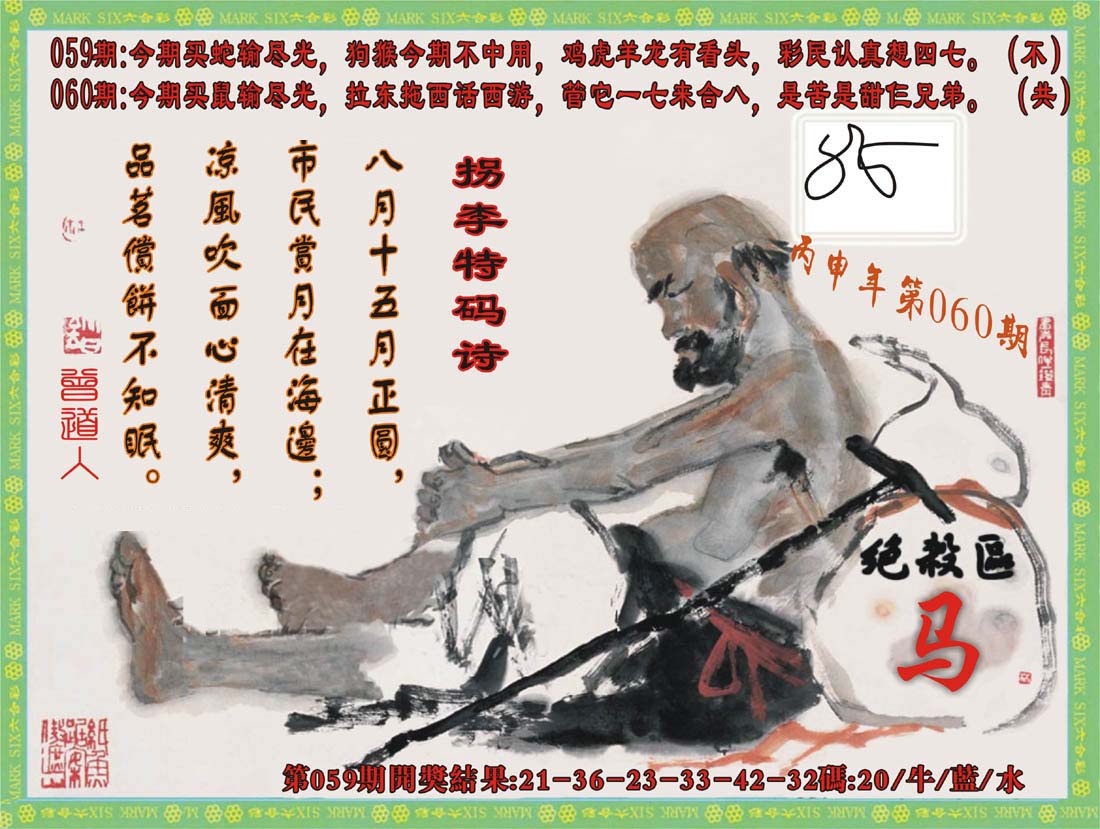 MARK SIX六合彩
059期:今期买蛇输尽光，狗猴今期不中用，鸡虎羊龙有看头，彩民认真想四七。（不）
060期:今期买鼠输尽光，拉东拖西话西游，管它一七来合八，是苦是甜仨兄弟。（共）
85
丙申年第060期
拐李特码诗
八月十五月正圓，
市民賞月在海邊；
凉風吹面心清爽，
品茗償餅不知眠。
曾道人
绝殺區
马
第059期開獎結果:21-36-23-33-42-32碼:20/牛/藍/水